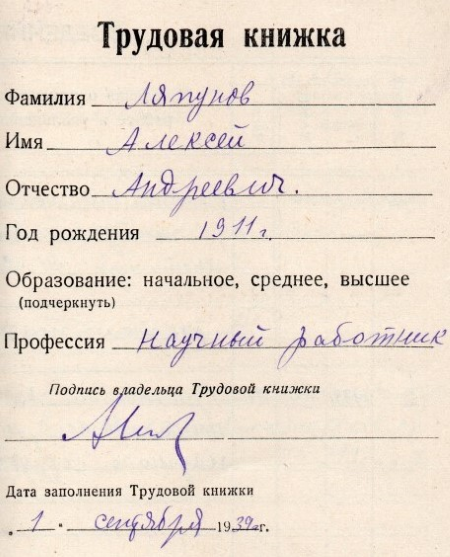 Трудовая книжка
Фамилия Ляпунов
Имя Алексей
Отчество Андреевич.
Год рождения 1911 г.
Образование: начальное, среднее, высшее
(подчеркнуть)
Профессия научный работник
Подпись владельца Трудовой книжки
Дата заполнения Трудовой книжки
„ 1 " сентября 1939 г.